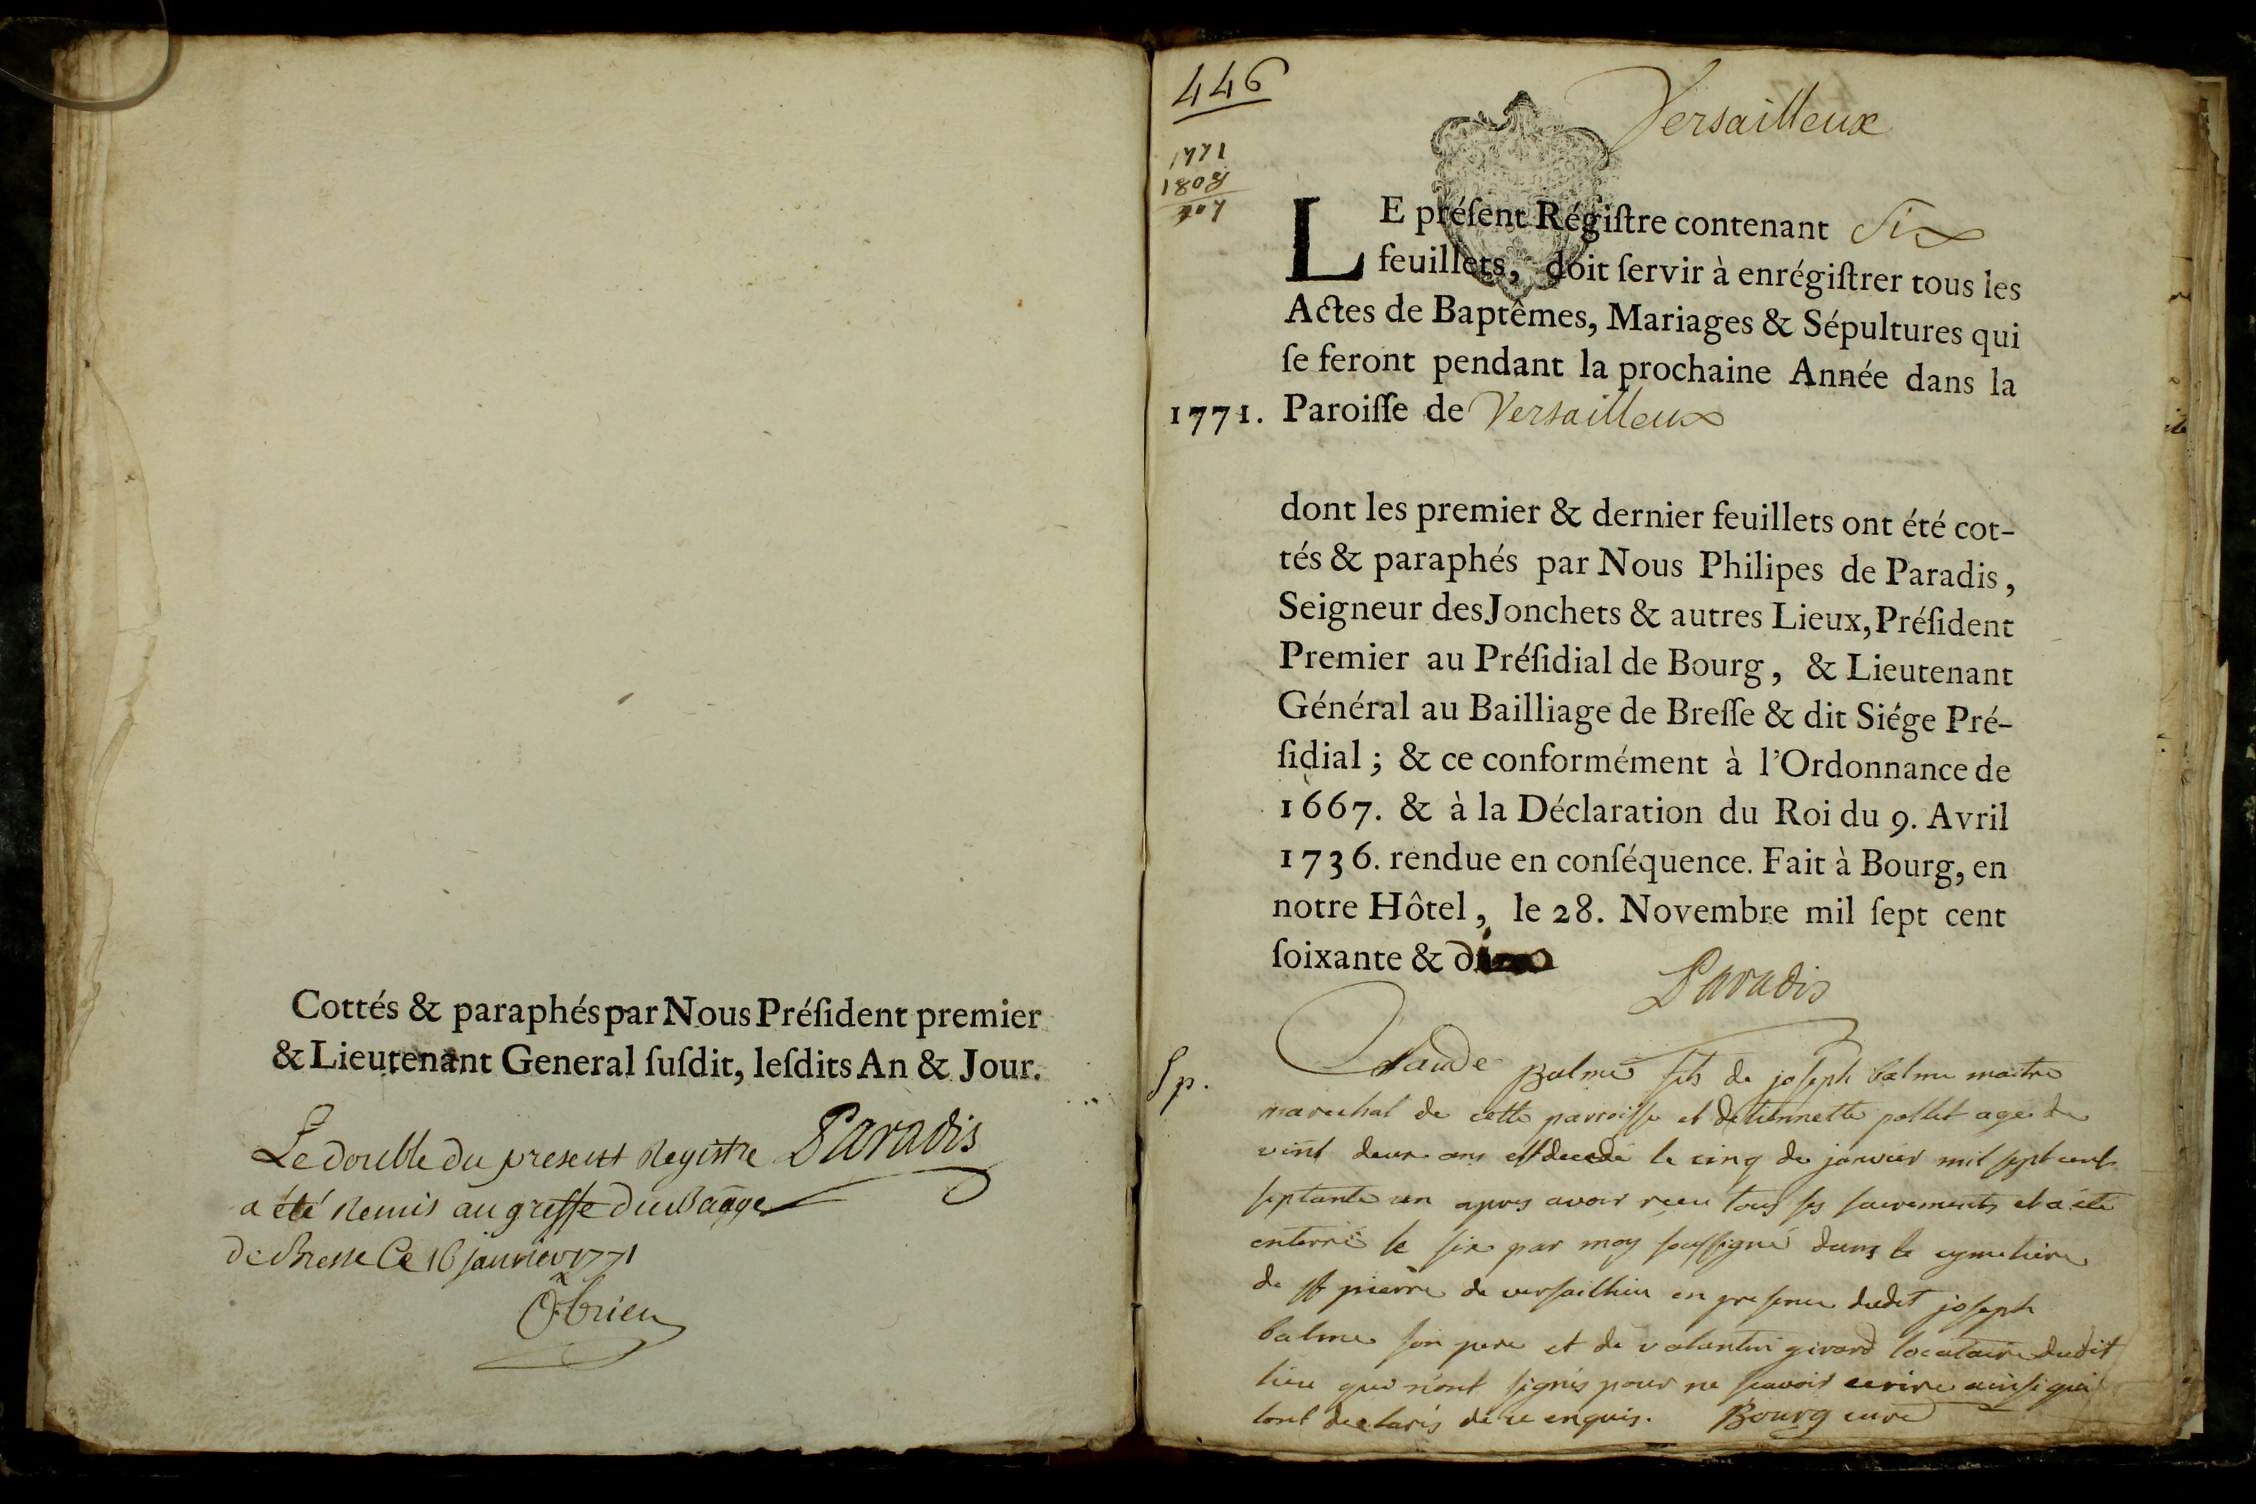 Cottés & paraphés par Nous Préſident premier
& Lieutenant General ſuſdit, leſdits An & Jour.
Le double du present Registre Paradis
a été Remis au greffe du Baage
de Bresse Ce 16 janvier 1771
Obrien
446
Versailleux
1771
1808
L E préſent Régiſtre contenant Six
feuillets, doit ſervir à enrégiſtrer tous les
Actes de Baptêmes, Mariages & Sépultures qui
ſe feront pendant la prochaine Année dans la
1771. Paroiſſe de Versailleux
dont les premier & dernier feuillets ont été cot-
tés & paraphés par Nous Philipes de Paradis,
Seigneur des Jonchets & autres Lieux, Préſident
Premier au Préſidial de Bourg, & Lieutenant
Général au Bailliage de Breſſe & dit Siége Pré-
ſidial ; & ce conformément à l'Ordonnance de
1667. & à la Déclaration du Roi du 9. Avril
1736. rendue en conſéquence. Fait à Bourg, en
notre Hôtel, le 28. Novembre mil ſept cent
ſoixante & dix
Paradis
Sp.
Claude Balme fils de joseph balme maitre
marechal de cette parroisse et detiennette pollet age de
vint deux ans est decedé le cinq de janvier mil sept cent
septante un apres avoir reçu tous ses sacrements et a été
enterré le six par moy soussigné dans le cymetiere
de st pierre de versaillieu en presence dudit joseph
balme son pere et de valantin girard locataire dudit
lieu qui n'ont signés pour ne scavoir ecrire ainsi qu'il
lont declarés de ce enquis. Bourg curé